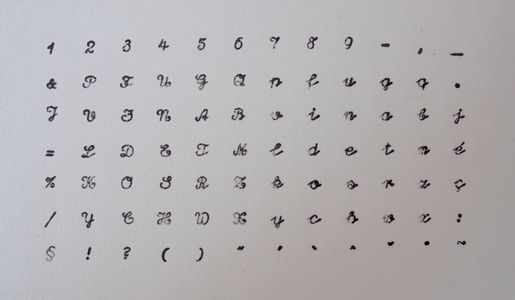 1 2 3 4 5 6 7 8 9 - , _
& P F U G Q p f u g q .
J V I N A B v i n a b j
= L D E T M l d e t m é
% K O S R Z k o s r z ç
/ Y C H W X y c h w x :
§ ! ? ( ) " ' ` ´ ^ • ~